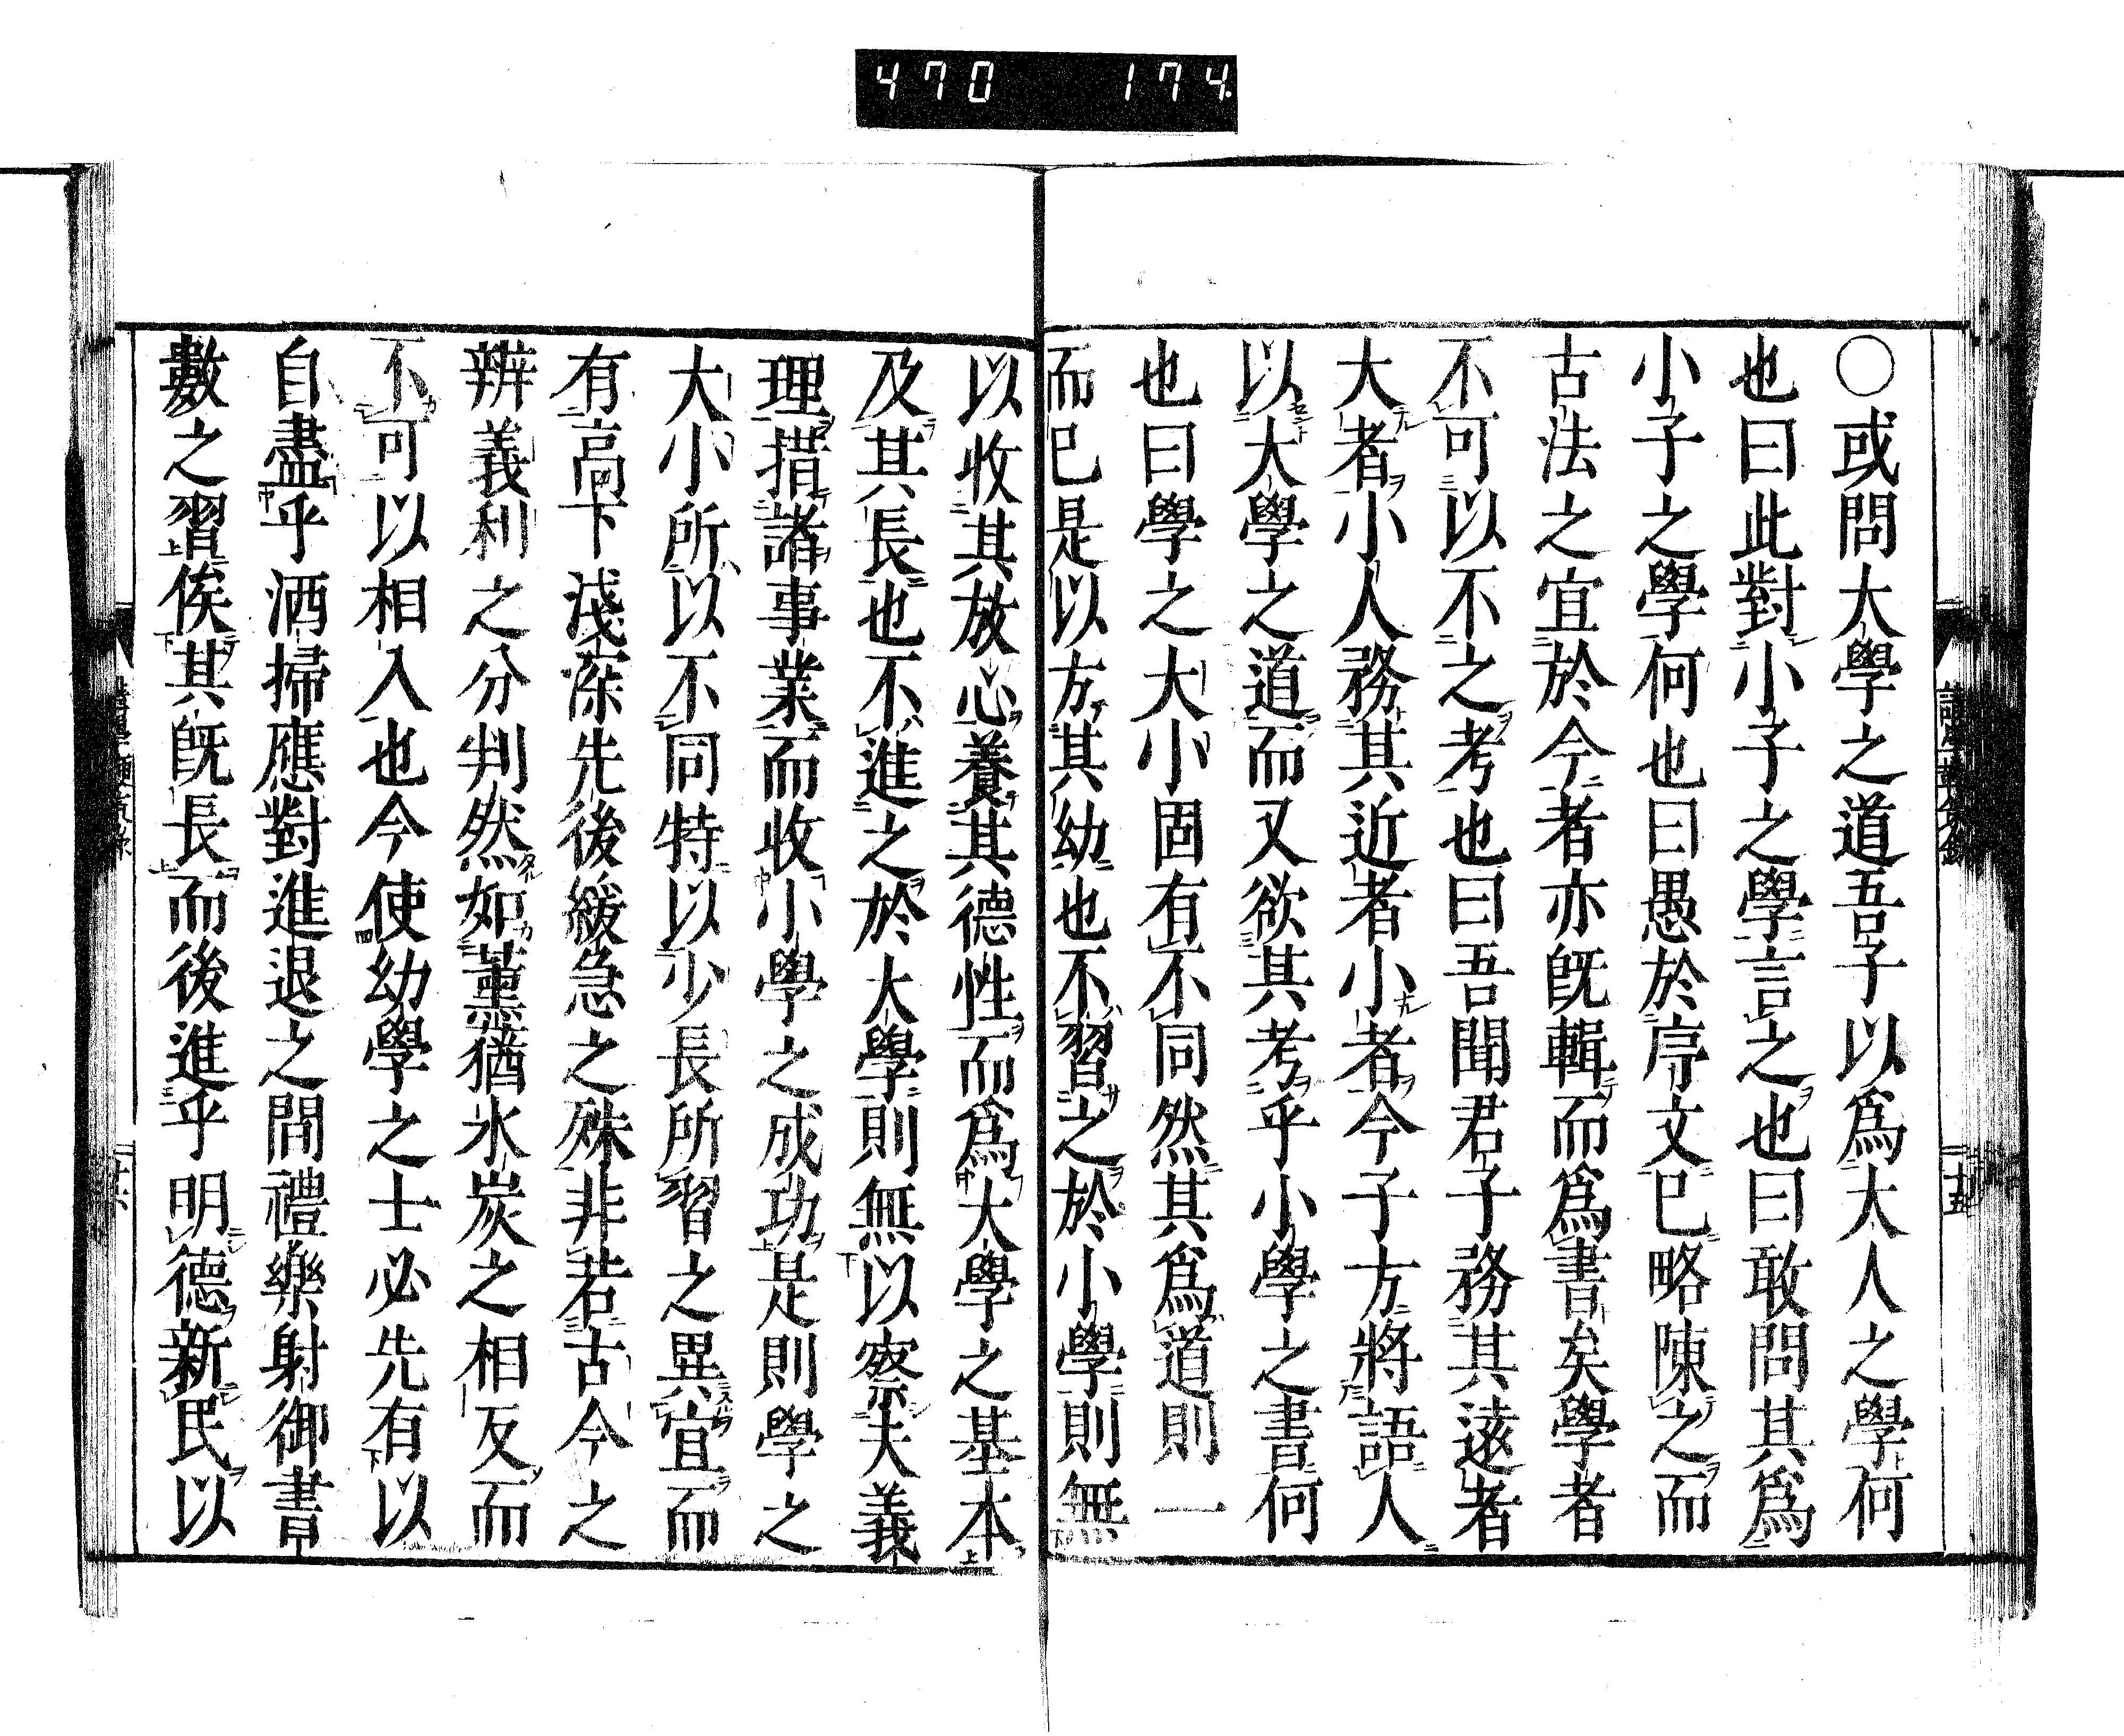 470 174
○或問大學之道吾子以爲大人之學何
也曰此對小子之學言之也曰敢問其爲
小子之學何也曰愚於序文已略陳之而
古法之宜於今者亦旣輯而爲書矣學者
不可以不之考也曰吾聞君子務其遠者
大者小人務其近者小者今子方將語人
以大學之道而又欲其考乎小學之書何
也曰學之大小固有不同然其爲道則一
而已是以方其幼也不習之於小學則無
以收其放心養其德性而爲大學之基本
及其長也不進之於大學則無以察夫義
理措諸事業而收小學之成功是則學之
大小所以不同特以少長所習之異宜而
有高下淺深先後緩急之殊非若古今之
辨義利之分判然如薰蕕氷炭之相反而
不可以相入也今使幼學之士必先有以
自盡乎洒掃應對進退之間禮樂射御書
數之習俟其旣長而後進乎明德新民以